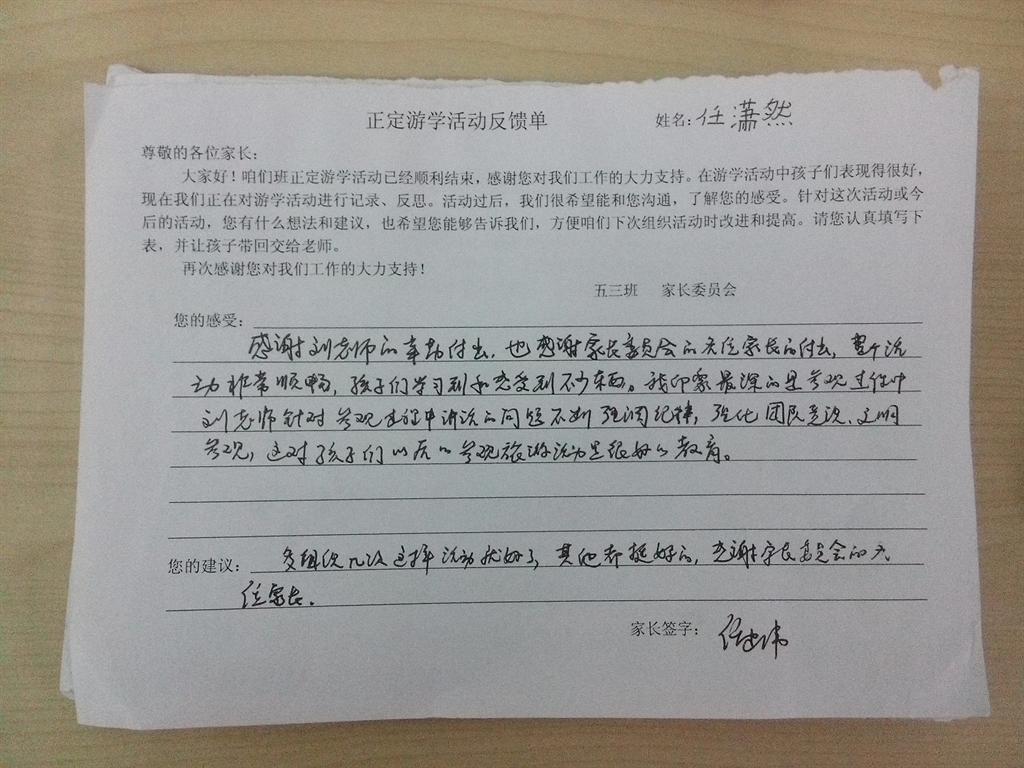 正定游学活动反馈单 姓名:任潇然
尊敬的各位家长：
大家好！咱们班正定游学活动已经顺利结束，感谢您对我们工作的大力支持。在游学活动中孩子们表现得很好，
现在我们正在对游学活动进行记录、反思。活动过后，我们很希望能和您沟通，了解您的感受。针对这次活动或今
后的活动，您有什么想法和建议，也希望您能够告诉我们，方便咱们下次组织活动时改进和提高。请您认真填写下
表，并让孩子带回交给老师。
再次感谢您对我们工作的大力支持！
五三班 家长委员会
您的感受：
感谢刘老师的辛勤付出，也感谢家长委员会的各位家长的付出，整个活
动非常顺畅，孩子们学习到和感受到不少东西。我印象最深的是参观过程中
刘老师针对参观过程中讲话的问题不断强调纪律，强化团队意识、文明
参观，这对孩子们以后的参观旅游活动是很好的教育。
您的建议：多组织几次这样活动就好了，其他都挺好的，感谢家长委员会的各
位家长。
家长签字：任